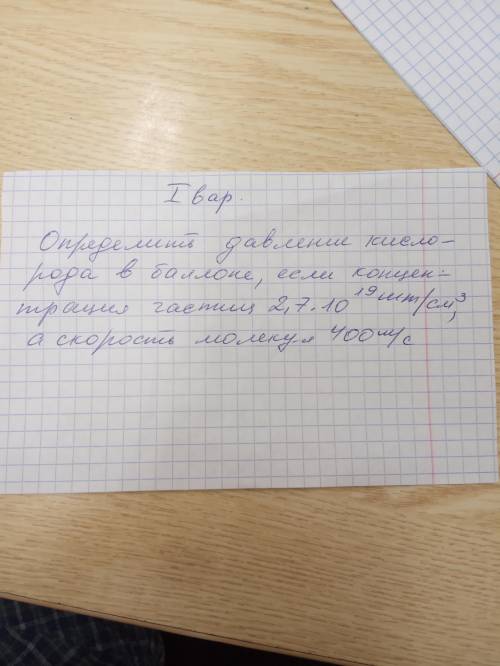 I вар.
Определить давление кисло-
рода в баллоне, если концен-
трация частиц 2,7·10¹⁹шт/см³,
а скорость молекул 400м/с